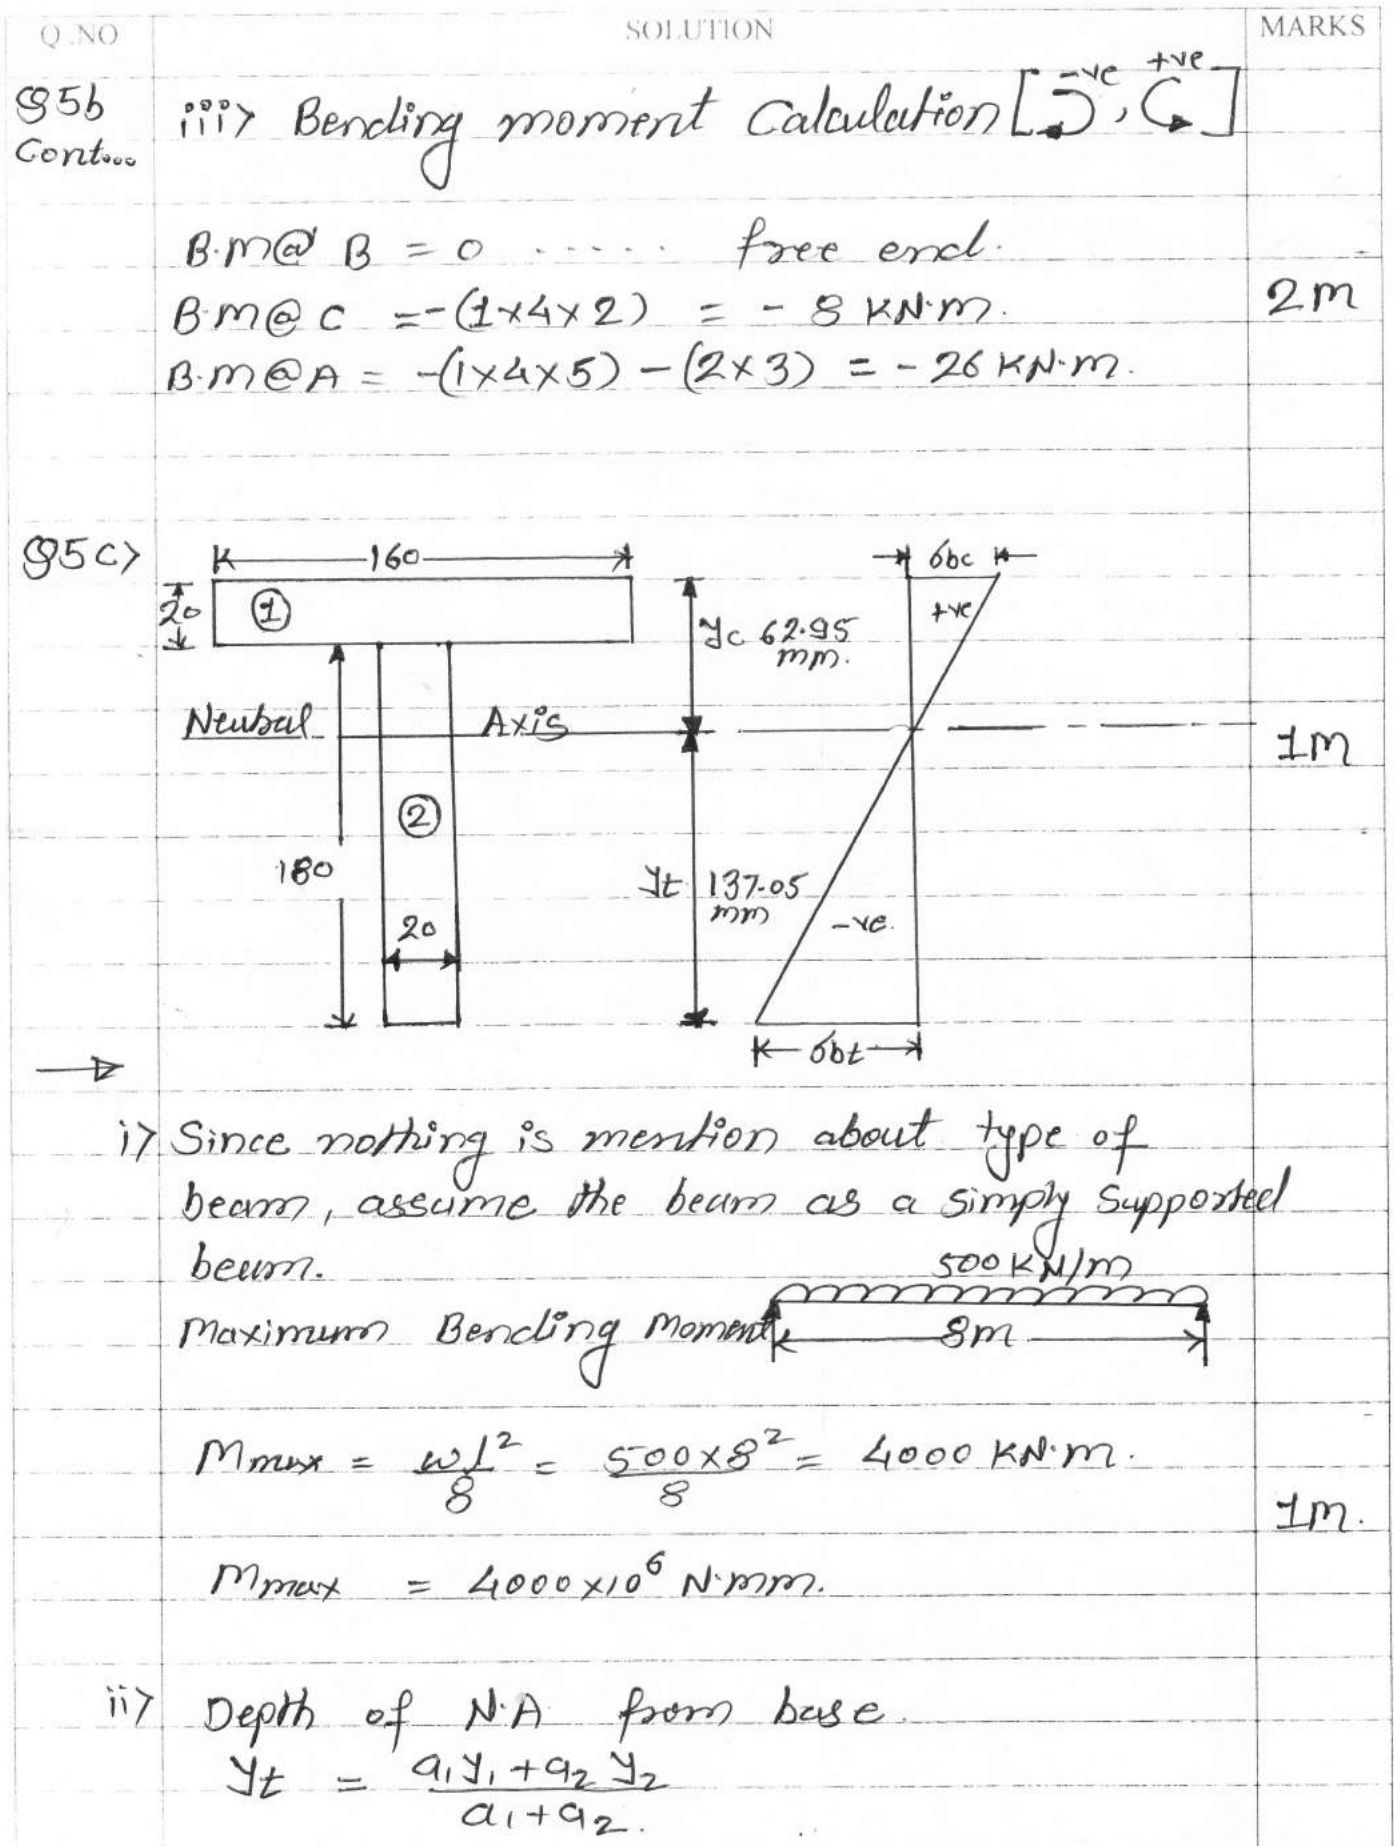 Q.NO SOLUTION MARKS
Q5b iii> Bending moment Calculation [ -ve , +ve ]
Cont...
B.M@ B = 0 ...... free end.
B.M@ C = -(1×4×2) = - 8 KN.m. 2M
B.M@A = -(1×4×5) - (2×3) = - 26 KN.m.
Q5c>
160 σbc
20 ① yc 62.95 mm. +ve
Neutral Axis 1M
②
180 yt 137.05 mm -ve.
20
σbt
i> Since nothing is mention about type of
beam, assume the beam as a simply supported
beam. 500 KN/m
Maximum Bending Moment 8m
Mmax = wl²/8 = 500×8²/8 = 4000 KN.m.
1M.
Mmax = 4000×10⁶ N.mm.
ii> Depth of N.A from base.
yt = a₁y₁+a₂y₂/a₁+a₂.